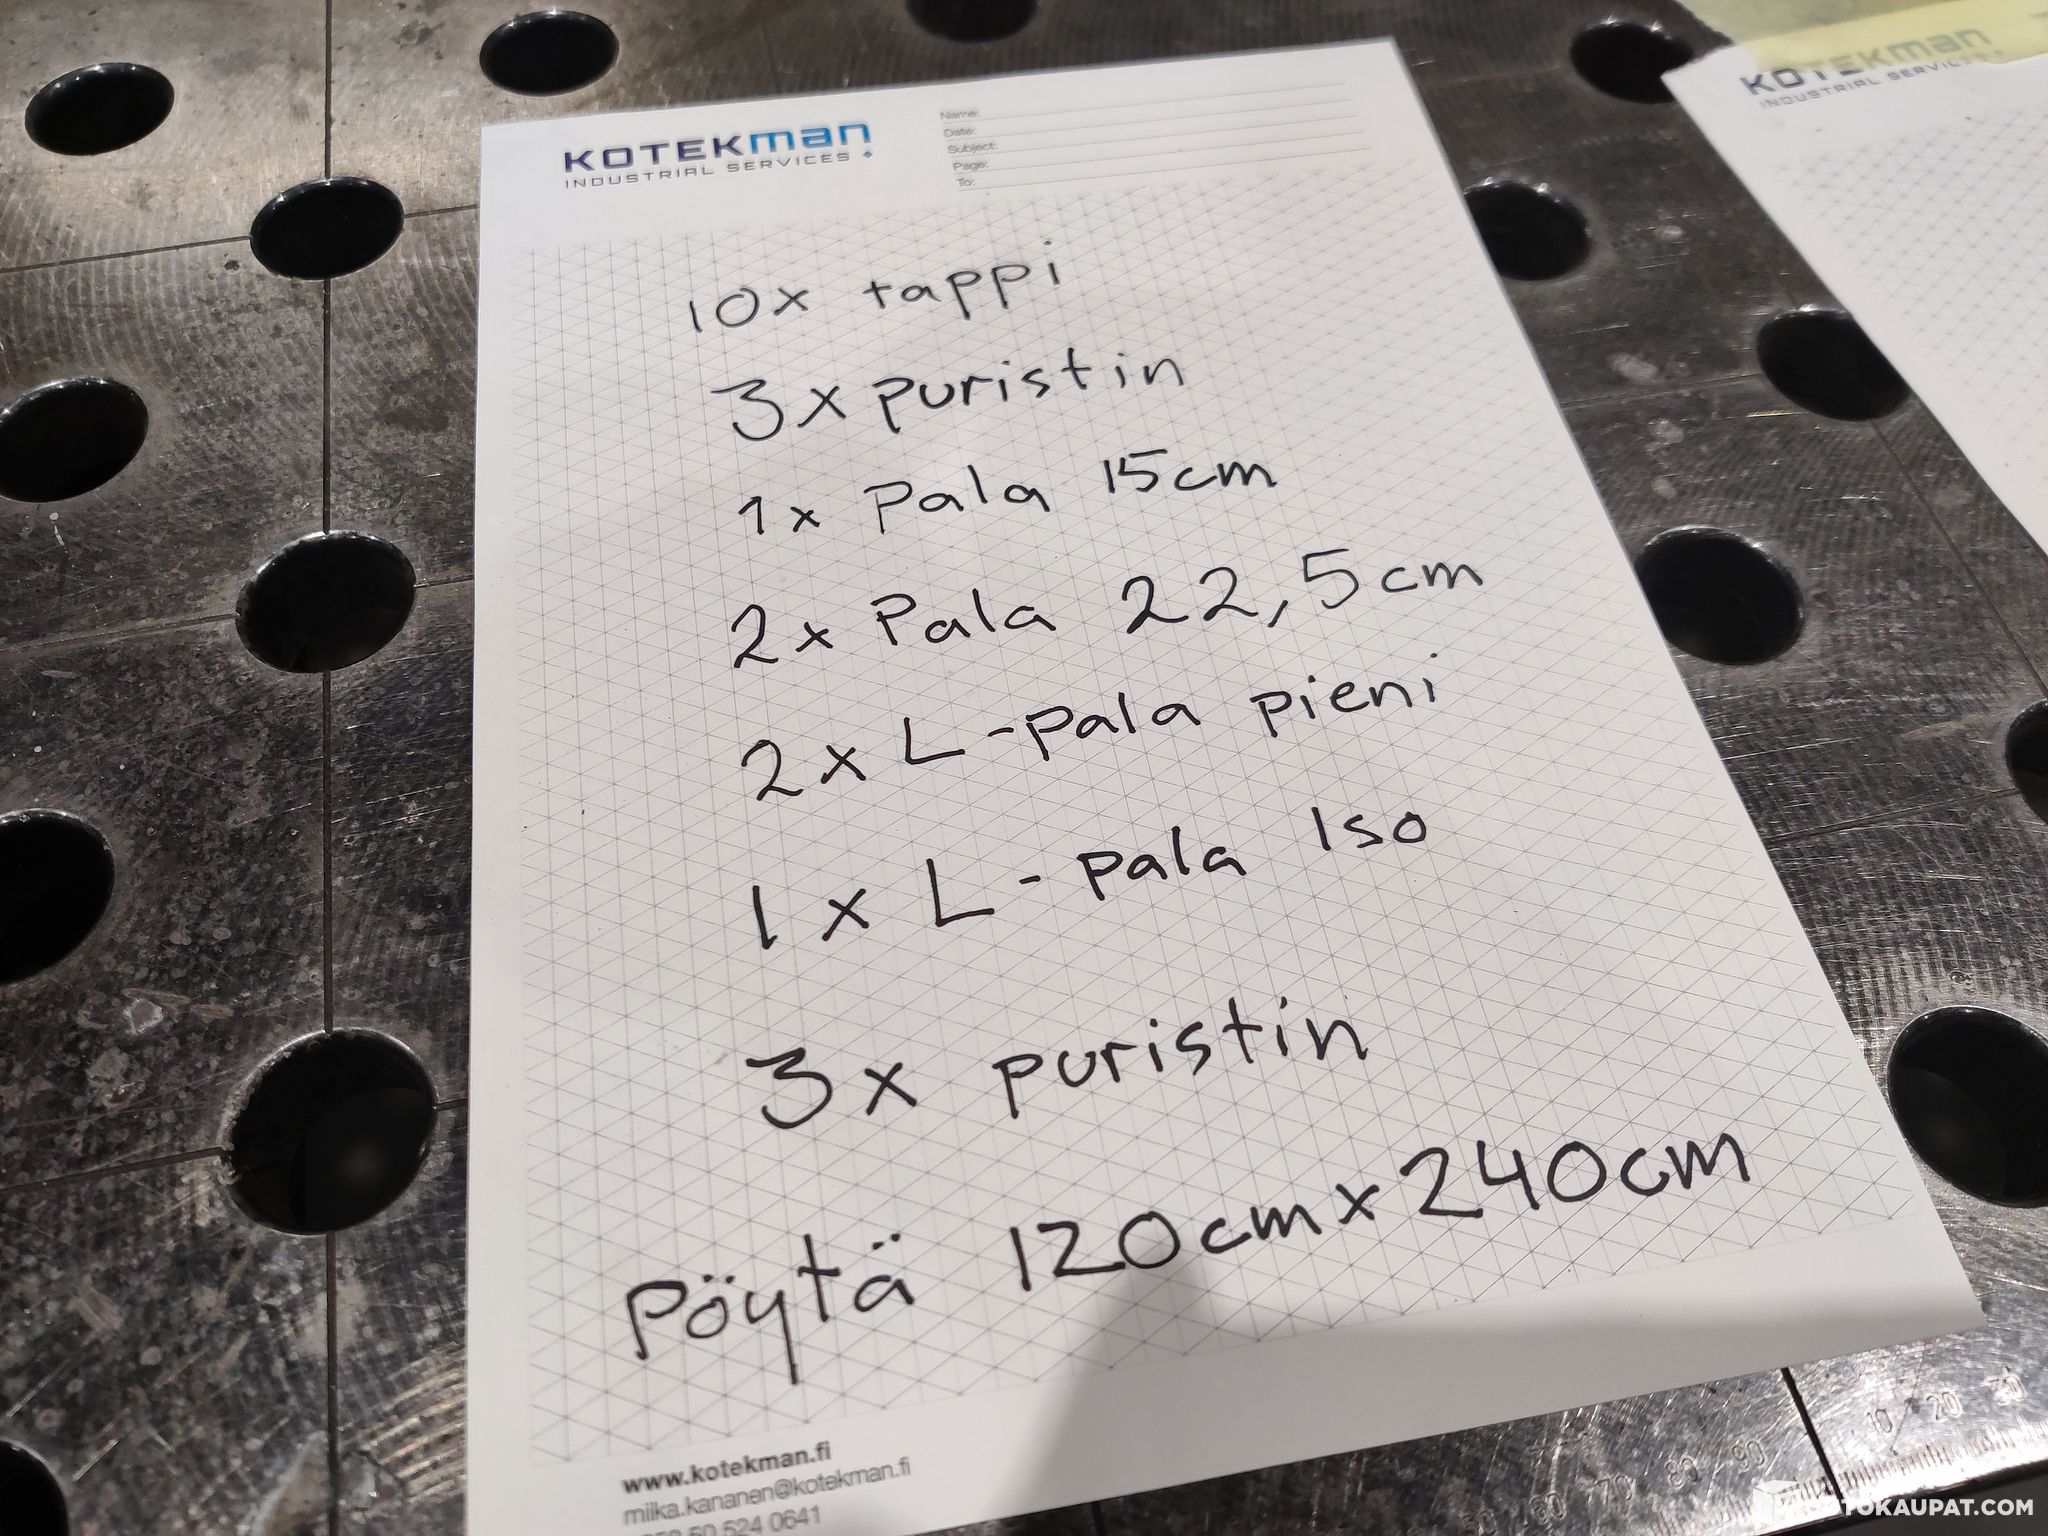 KOTEKman
INDUSTRIAL SERVICES
Name:
Date:
Subject:
Page:
To:
10x tappi
3x puristin
1x Pala 15cm
2x Pala 22,5cm
2x L-pala pieni
1x L-pala Iso
3x puristin
Pöytä 120cm x 240cm
www.kotekman.fi
milka.kananen@kotekman.fi
50 524 0641
KOTEKman
INDUSTRIAL SERVICES
10 20 30
60 70 80 90
TOKAUPAT.COM